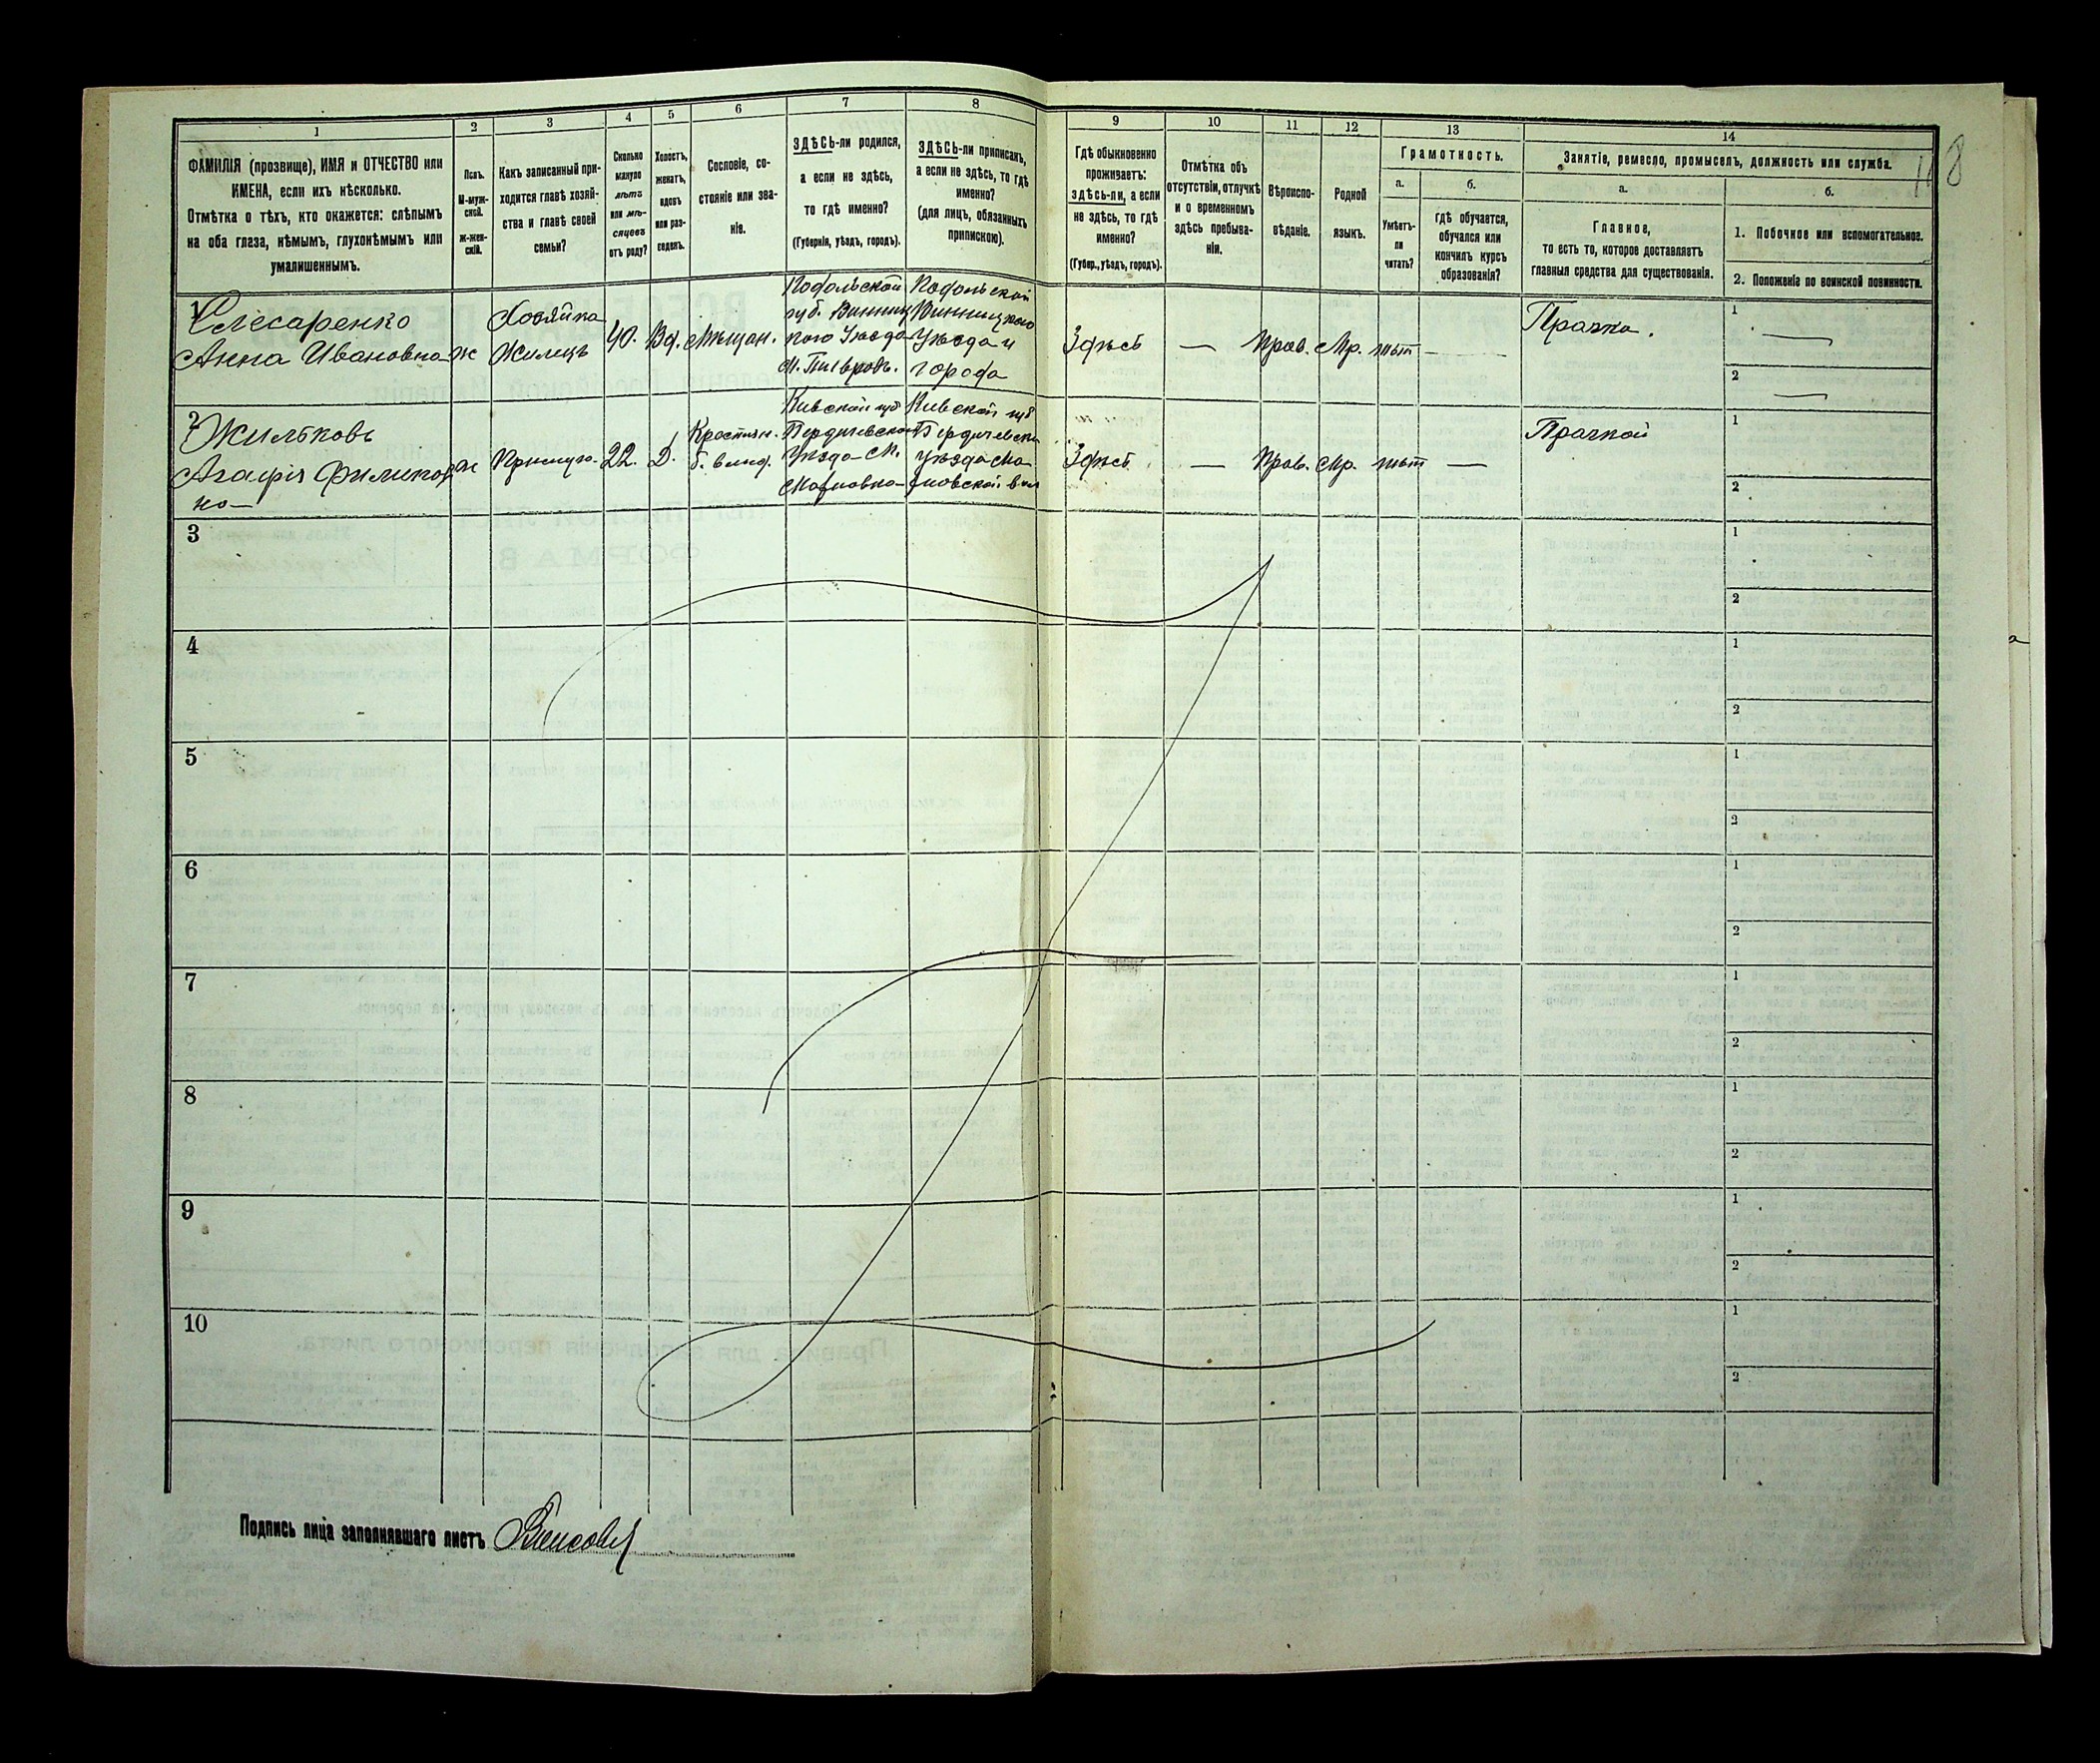 1
2
3
4
5
6
7
8
9
10
11
12
13
14
ФАМИЛІЯ (прозвище), ИМЯ и ОТЧЕСТВО или
ИМЕНА, если ихъ нѣсколько.
Отмѣтка о тѣхъ, кто окажется: слѣпымъ
на оба глаза, нѣмымъ, глухонѣмымъ или
умалишеннымъ.
Полъ.
М-муж-
ской.
Ж-жен-
скій.
Какъ записанный при-
ходится главѣ хозяй-
ства и главѣ своей
семьи?
Сколько
минуло
лѣтъ
или мѣ-
сяцевъ
отъ роду?
Холостъ,
женатъ,
вдовъ
или раз-
веденъ.
Сословіе, со-
стояніе или зва-
ніе.
ЗДѢСЬ-ли родился,
а если не здѣсь,
то гдѣ именно?
(Губернія, уѣздъ, городъ).
ЗДѢСЬ-ли приписанъ,
а если не здѣсь, то гдѣ
именно?
(для лицъ, обязанныхъ
припискою).
Гдѣ обыкновенно
проживаетъ:
здѣсь-ли, а если
не здѣсь, то гдѣ
именно?
(Губер., уѣздъ, городъ).
Отмѣтка объ
отсутствіи, отлучкѣ
и о временномъ
здѣсь пребыва-
ніи.
Вѣроиспо-
вѣданіе.
Родной
языкъ.
Грамотность.
а.
Умѣетъ-
ли
читать?
б.
гдѣ обучается,
обучался или
кончилъ курсъ
образованія?
Занятіе, ремесло, промыселъ, должность или служба.
а.
Главное,
то есть то, которое доставляетъ
главныя средства для существованія.
б.
1. Побочное или вспомогательное.
2. Положеніе по воинской повинности.
1
Слесаренко
Анна Ивановна
ж
Хозяйка
Жилецъ
40.
Вд.
Мѣщан.
Подольской
губ. Винниц
кого Уѣзда
Подольской
Винницкого
Уѣзда и
города
Здѣсь
—
Прав.
Мр.
нѣт
—
Прачка.
1
2
2
Жилѣковъ
Агафія Филипов
на
ж
Прислуга
22.
Д.
Крестьян.
Кивской губ
Бердичевской
Уѣзда М.
Кивской губ
Бердичевской
Уѣзда
Здѣсь
—
Прав.
Мр.
нѣт
—
Прачкой
1
2
3
1
2
4
1
2
5
1
2
6
1
2
7
1
2
8
1
2
9
1
2
10
1
2
Подпись лица заполнявшаго листъ